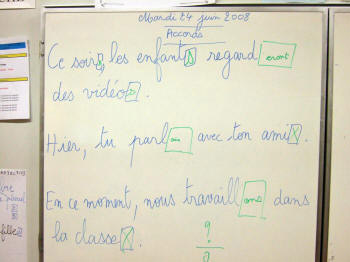 Mardi 24 juin 2008
Accords
Ce soir, les enfants regarderont
des vidéos.
Hier, tu parlais avec ton ami.
En ce moment, nous travaillons dans
la classe.
?
fille